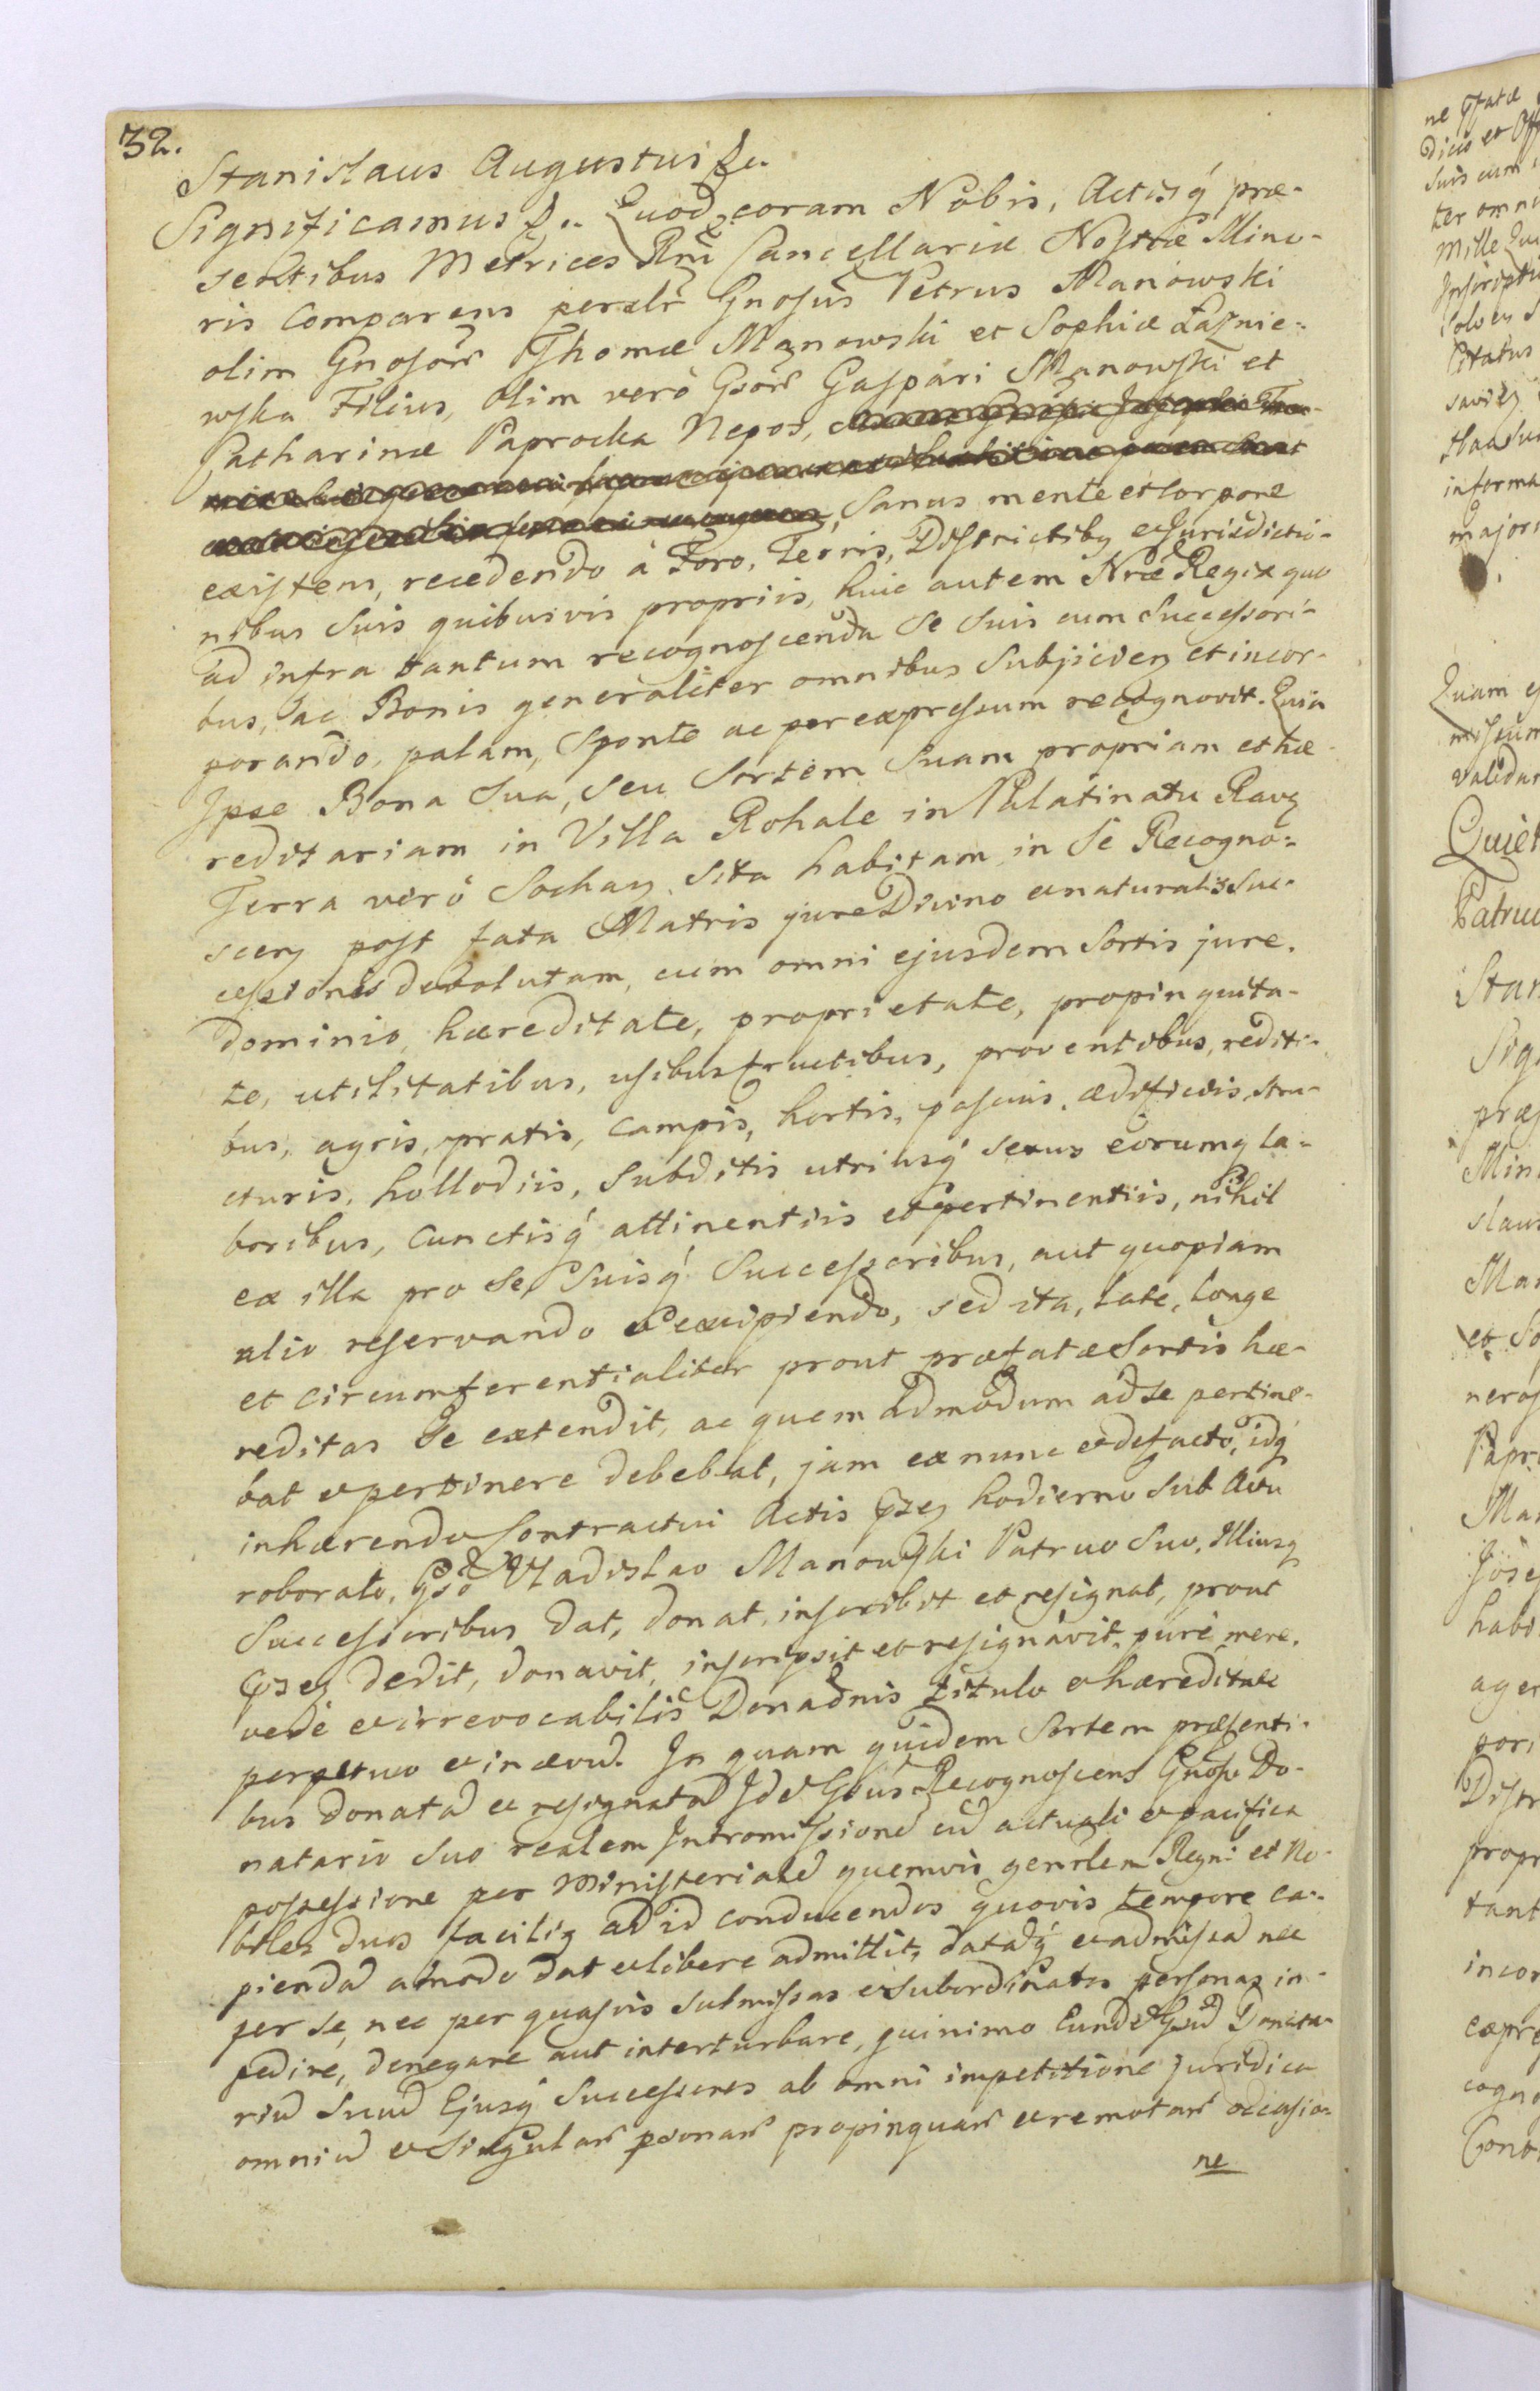 32.
Stanislaus Augustus &c.
Significamus &c. Quod coram Nobis, Actisq́ præ-
sentibus Metrices Rñi Cancellariæ Nostræ Mino-
ris Comparens peraltr̃ Gnosus Petrus Manowski
olim Gnosor̃ Thomæ Manowski et Sophiæ Łaznie-
wska Filius, Olim verò Gsor̃ Gaspari Manowski et
Catharinæ Paprocka Nepos,
Sanus mente et Corpore
existens, recedendo à Foro, Terris, Districtibꝫ et Jurisdictio-
nibus Suis quibusvis propriis, huic autem Nræ Regiæ quo
ad infra tantum recognoscenda Se Suis cum Successori-
bus, ac Bonis generaliter omnibus Subjiciens et incor-
porando, palam, Sponte ac per expressum recognovit. Quia
Ipse Bona Sua, Seu Sortem Suam propriam et hæ-
reditariam in Villa Rohale in Palatinatu Ravꝫ
Terra verò Sochaꝫ Sita habitam in Se Recogno-
scenꝫ post fata Matris jure Divino et naturalis Suc-
cessionis devolutam, cum omni ejusdem Sortis jure,
dominio, hæreditate, proprietate, propinquita-
te, utilitatibus, usibus fructibus, proventibus, rediti-
bus, agris, pratis, campis, hortis, pascuis, ædificiis, stru-
cturis, hollodiis, Subditis utriusq́ sexus eorumq la-
boribus, Cunctisq́ attinentiis et pertinentiis, nihil
ex illa pro Se, Suisq́ Successoribus, aut quopiam
alio reservando et excipiendo, sed ita, late, longe
et circumferentialiter prout præfatæ Sortis hæ-
reditas Se extendit, ac quem admodum ad Se pertine-
bat et pertinere debebat, jam ex nunc et de facto, idq̃
inhærendo Contractui Actis p̃sꝫ hodierno Sub Actu
roborato, Gsõ Vladislao Manowski Patruo Suo, Illiusq
Successoribus dat, donat, inscribit et resignat, prout
p̃sꝫ dedit, donavit, inscripsit et resignavit, purè mere,
verè et irrevocabilis Donaõnis titulo et hæreditate
perpetuo et in ævũ. In quam quidem Sortem præsenti-
bus donatã et resignatã Idẽ Gsus Recognoscens Gnoso Do-
natario Suo realem Intromissionẽ cũ actuali et pacifica
possessione per Ministerialẽ quemvis genrlem Regni et No-
biles duos faciliꝫ ad id conducendos quovis tempore ca-
piendã amodo dat et libere admittit, datãq́ et admissã nec
per se, nec per quasvis submissas et subordinatas personas im-
pedire, denegare aut interturbare, quinimo Eundẽ Gsũ Donata-
riũ Suũ Ejusq́ Successores ab omni impetitione juridica
omniũ et Singular̃ psonar̃ propinquar̃ et remotar̃ occasio-
ne
ne p̃fatæ
dicii et Off
Suis cum
ter omni
Mille
Inscripti
Citatus
informa
major
Quam
validar
Quiet
Patruu
Stan
Sig
præs
Min
slaus
Man
et So
nero
Papr
Man
Jose
habi
agen
pori
Distr
propr
tant
incor
expre
cogno